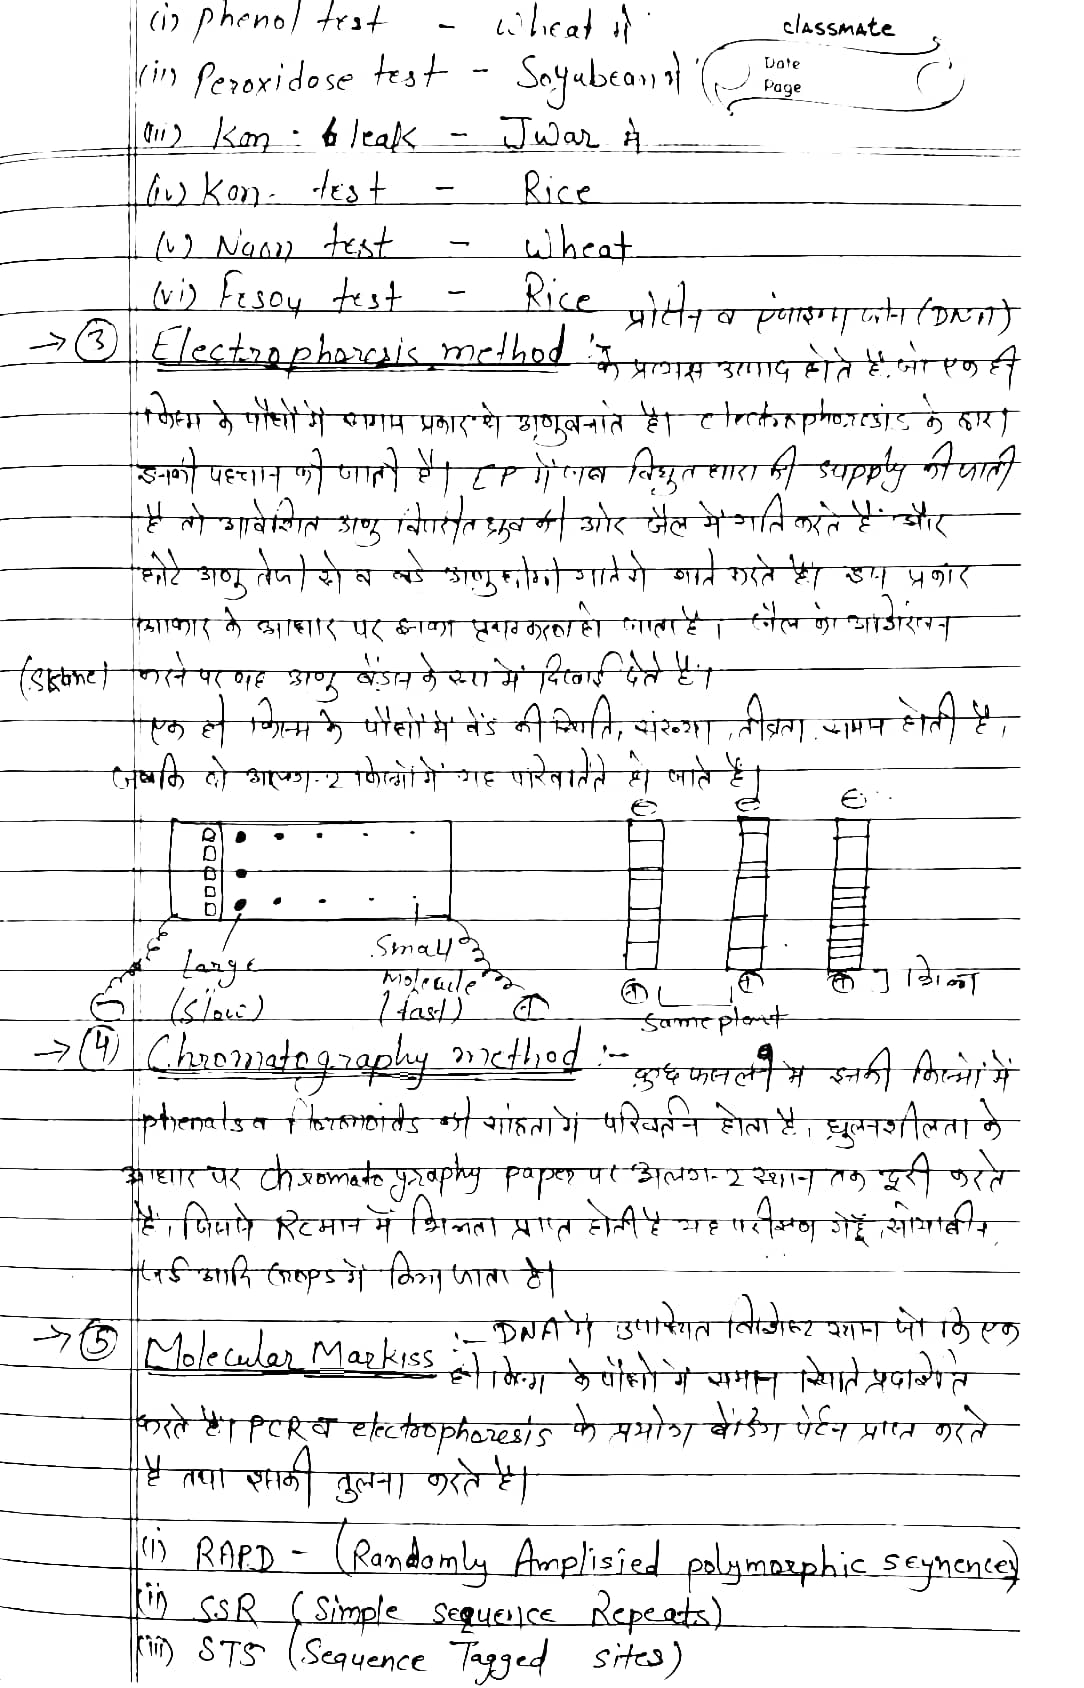 (i) phenol test - wheat में
classmate
Date
Page
(ii) Peroxidose test - Soyabean में
(iii) Kon : bleak - Jwar में
(iv) Kon. test - Rice
(v) Naon test - wheat
(vi) Fesoy test - Rice
प्रोटीन व एंजाइम जीन (DNA)
→ ③ Electrophoresis method :- के प्रत्यक्ष उत्पाद होते हैं, जो एक ही
किस्म के पौधों में समान प्रकार के अणु बनाते है। electrophoresis के द्वारा
इनकी पहचान की जाती है। EP में जब विद्युत धारा की supply की जाती
है तो आवेशित अणु विपरीत ध्रुव की ओर जैल में गति करते हैं और
छोटे अणु तेजी से व बडे अणु धीमी गति से गति करते है। इस प्रकार
आकार के आधार पर इनका पृथक्करण हो जाता है। जैल को अभिरंजन
करने पर यह अणु बैंडस के रूप में दिखाई देते है।
एक ही किस्म के पौधों में बेंड की स्थिति, संख्या, तीव्रता समान होती है,
जबकि दो अलग-2 किस्मों में यह परिवर्तित हो जाते है।
Large
(Slow)
Small
Molecule
(fast)
Same plant
भिन्न
→ ④ Chromatography method :- कुछ फसलों में इनकी किस्मों में
phenals व की सांद्रता में परिवर्तन होता है, घुलनशीलता के
आधार पर chromatography paper पर अलग-2 स्थान तक दूरी करते
है, जिससे Rf मान में भिन्नता प्राप्त होती है यह परीक्षण गेहूँ, सोयाबीन,
जई आदि crops में किया जाता है।
→ ⑤ Molecular Markiss :- DNA में उपस्थित विशिष्ट स्थान जो कि एक
ही किस्म के पौधों में समान स्थिति प्रदर्शित
करते है। PCR व electrophoresis के प्रयोग बेंडिंग पेर्टन प्राप्त करते
है तथा इसकी तुलना करते है।
(i) RAPD - (Randomly Amplisied polymorphic seynence)
(ii) SSR (Simple sequence Repeats)
(iii) STS (Sequence Tagged sites)